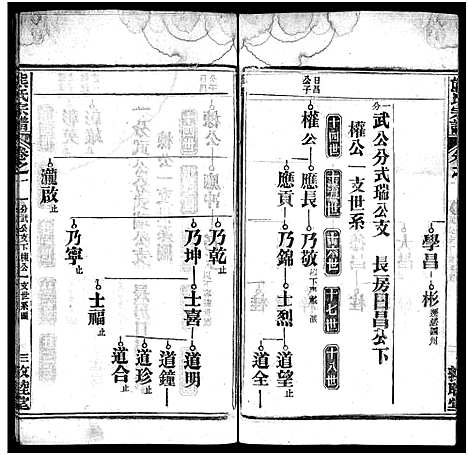 學昌
彬
一分
武公分式瑞公支 長房日昌公下
權公一支世系
十四世
十五世
十六世
十七世
十八世
日昌公子
權公
應長 乃敬
應貢 乃錦 士烈 道望止
道全
乃乾止
乃坤 士喜 道明
道鐘
道珍止
道合止
士福止
乃寧止
瀧啟止
熊氏宗譜 卷之一
一分武公支下權公一支世系圖
三 敦睦堂